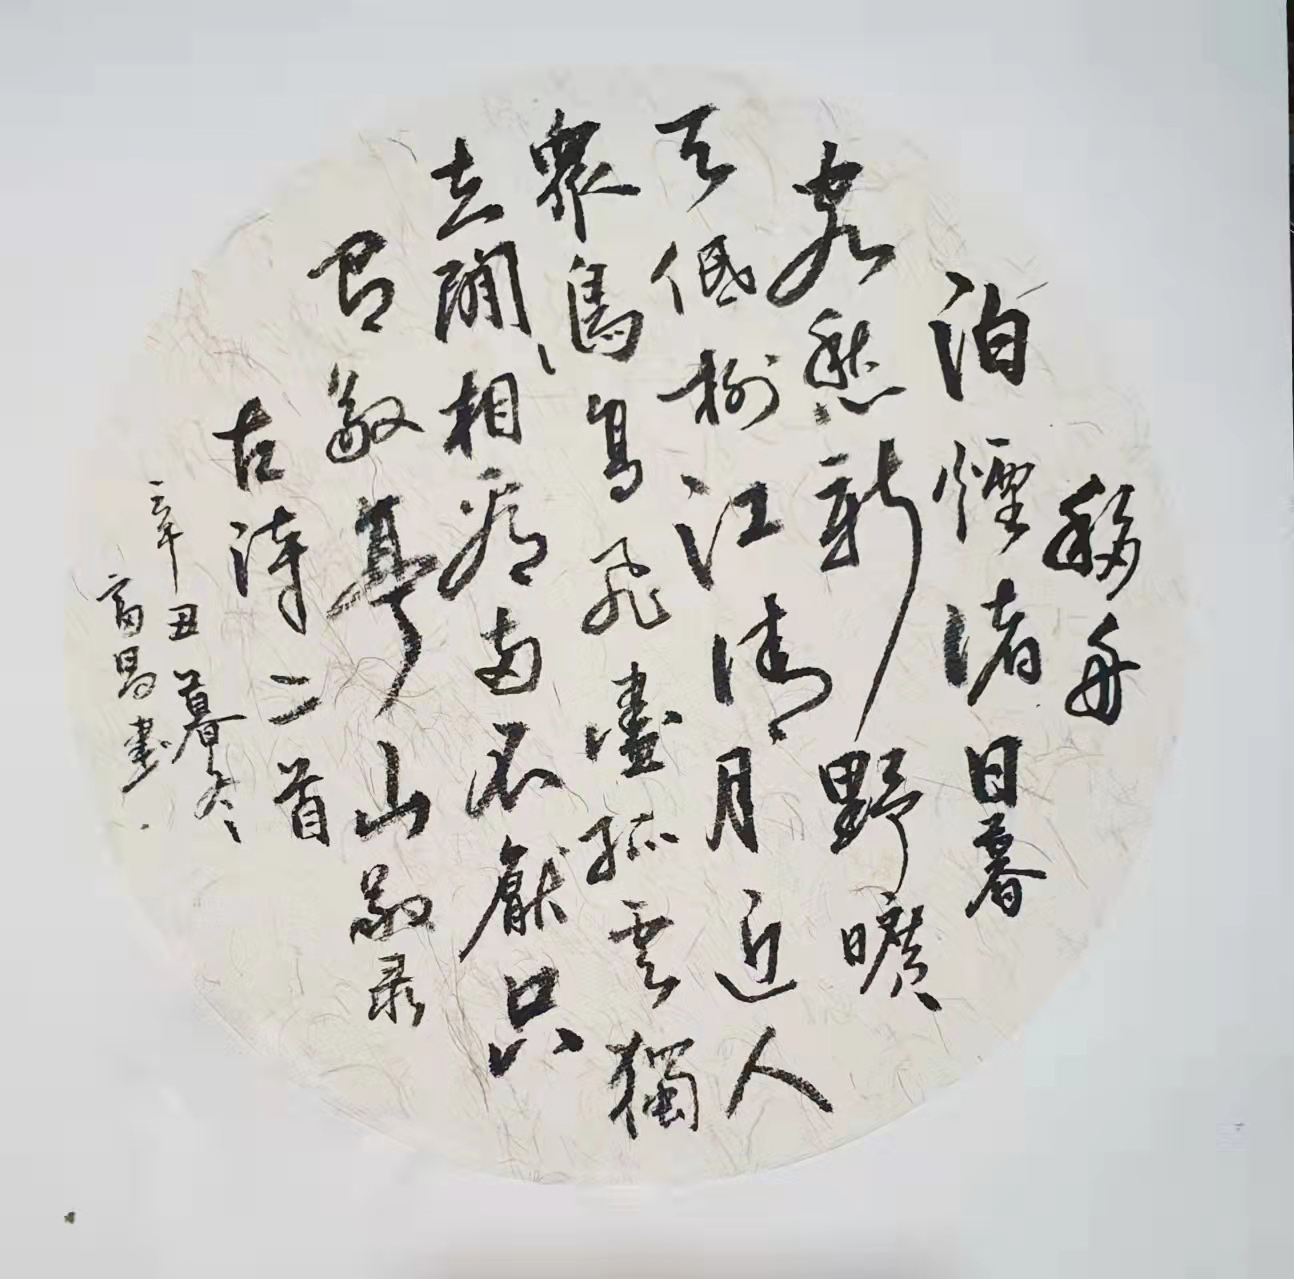 移舟
泊煙渚日暮
客愁新野曠
天低树江清月近人
衆鳥高飛盡孤雲獨
去閒相看两不厭只
有敬亭山敬录
古诗二首
辛丑暮冬
昌書